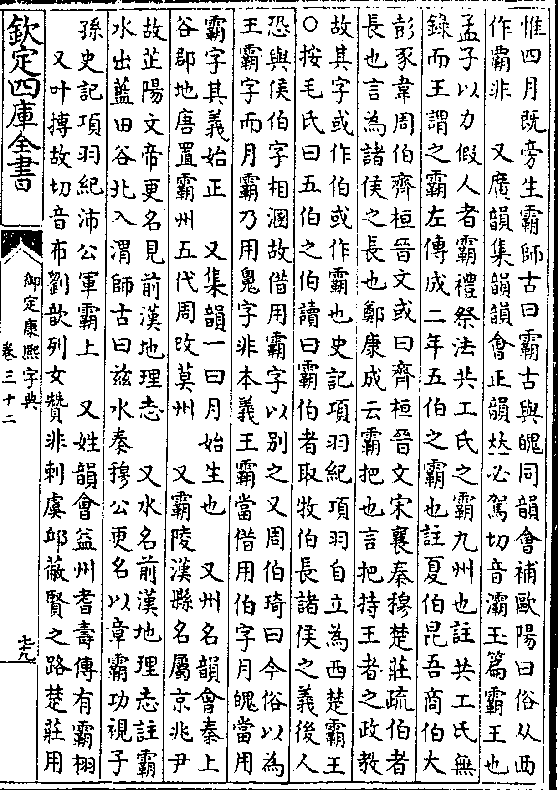 惟四月既旁生霸師古曰霸古與魄同韻會補歐陽曰俗从西
作覇非　又廣韻集韻韻會正韻𠀤必駕切音灞玉篇霸王也
孟子以力假人者霸禮祭法共工氏之霸九州也註共工氏無
錄而王謂之霸左傳成二年五伯之霸也註夏伯昆吾商伯大
彭豕韋周伯齊桓晉文或曰齊桓晉文宋襄秦穆楚莊疏伯者
長也言為諸侯之長也鄭康成云霸把也言把持王者之政教
故其字或作伯或作霸也史記項羽紀項羽自立為西楚霸王
○按毛氏曰五伯之伯讀曰霸伯者取牧伯長諸侯之義後人
恐與侯伯字相溷故借用霸字以别之又周伯琦曰今俗以為
王霸字而月霸乃用鬼字非本義王霸當借用伯字月魄當用
霸字其義始正　又集韻一曰月始生也　又州名韻會秦上
谷郡地唐置霸州五代周改莫州　又霸陵漢縣名屬京兆尹
故芷陽文帝更名見前漢地理志　又水名前漢地理志註霸
水出藍田谷北入渭師古曰茲水秦穆公更名以章霸功視子
孫史記項羽紀沛公軍霸上　又姓韻會益州耆壽傳有霸栩
又叶搏故切音布劉歆列女贊非刺虞邱蔽賢之路楚莊用
欽定四庫全書
御定康熙字典
卷三十二
七九